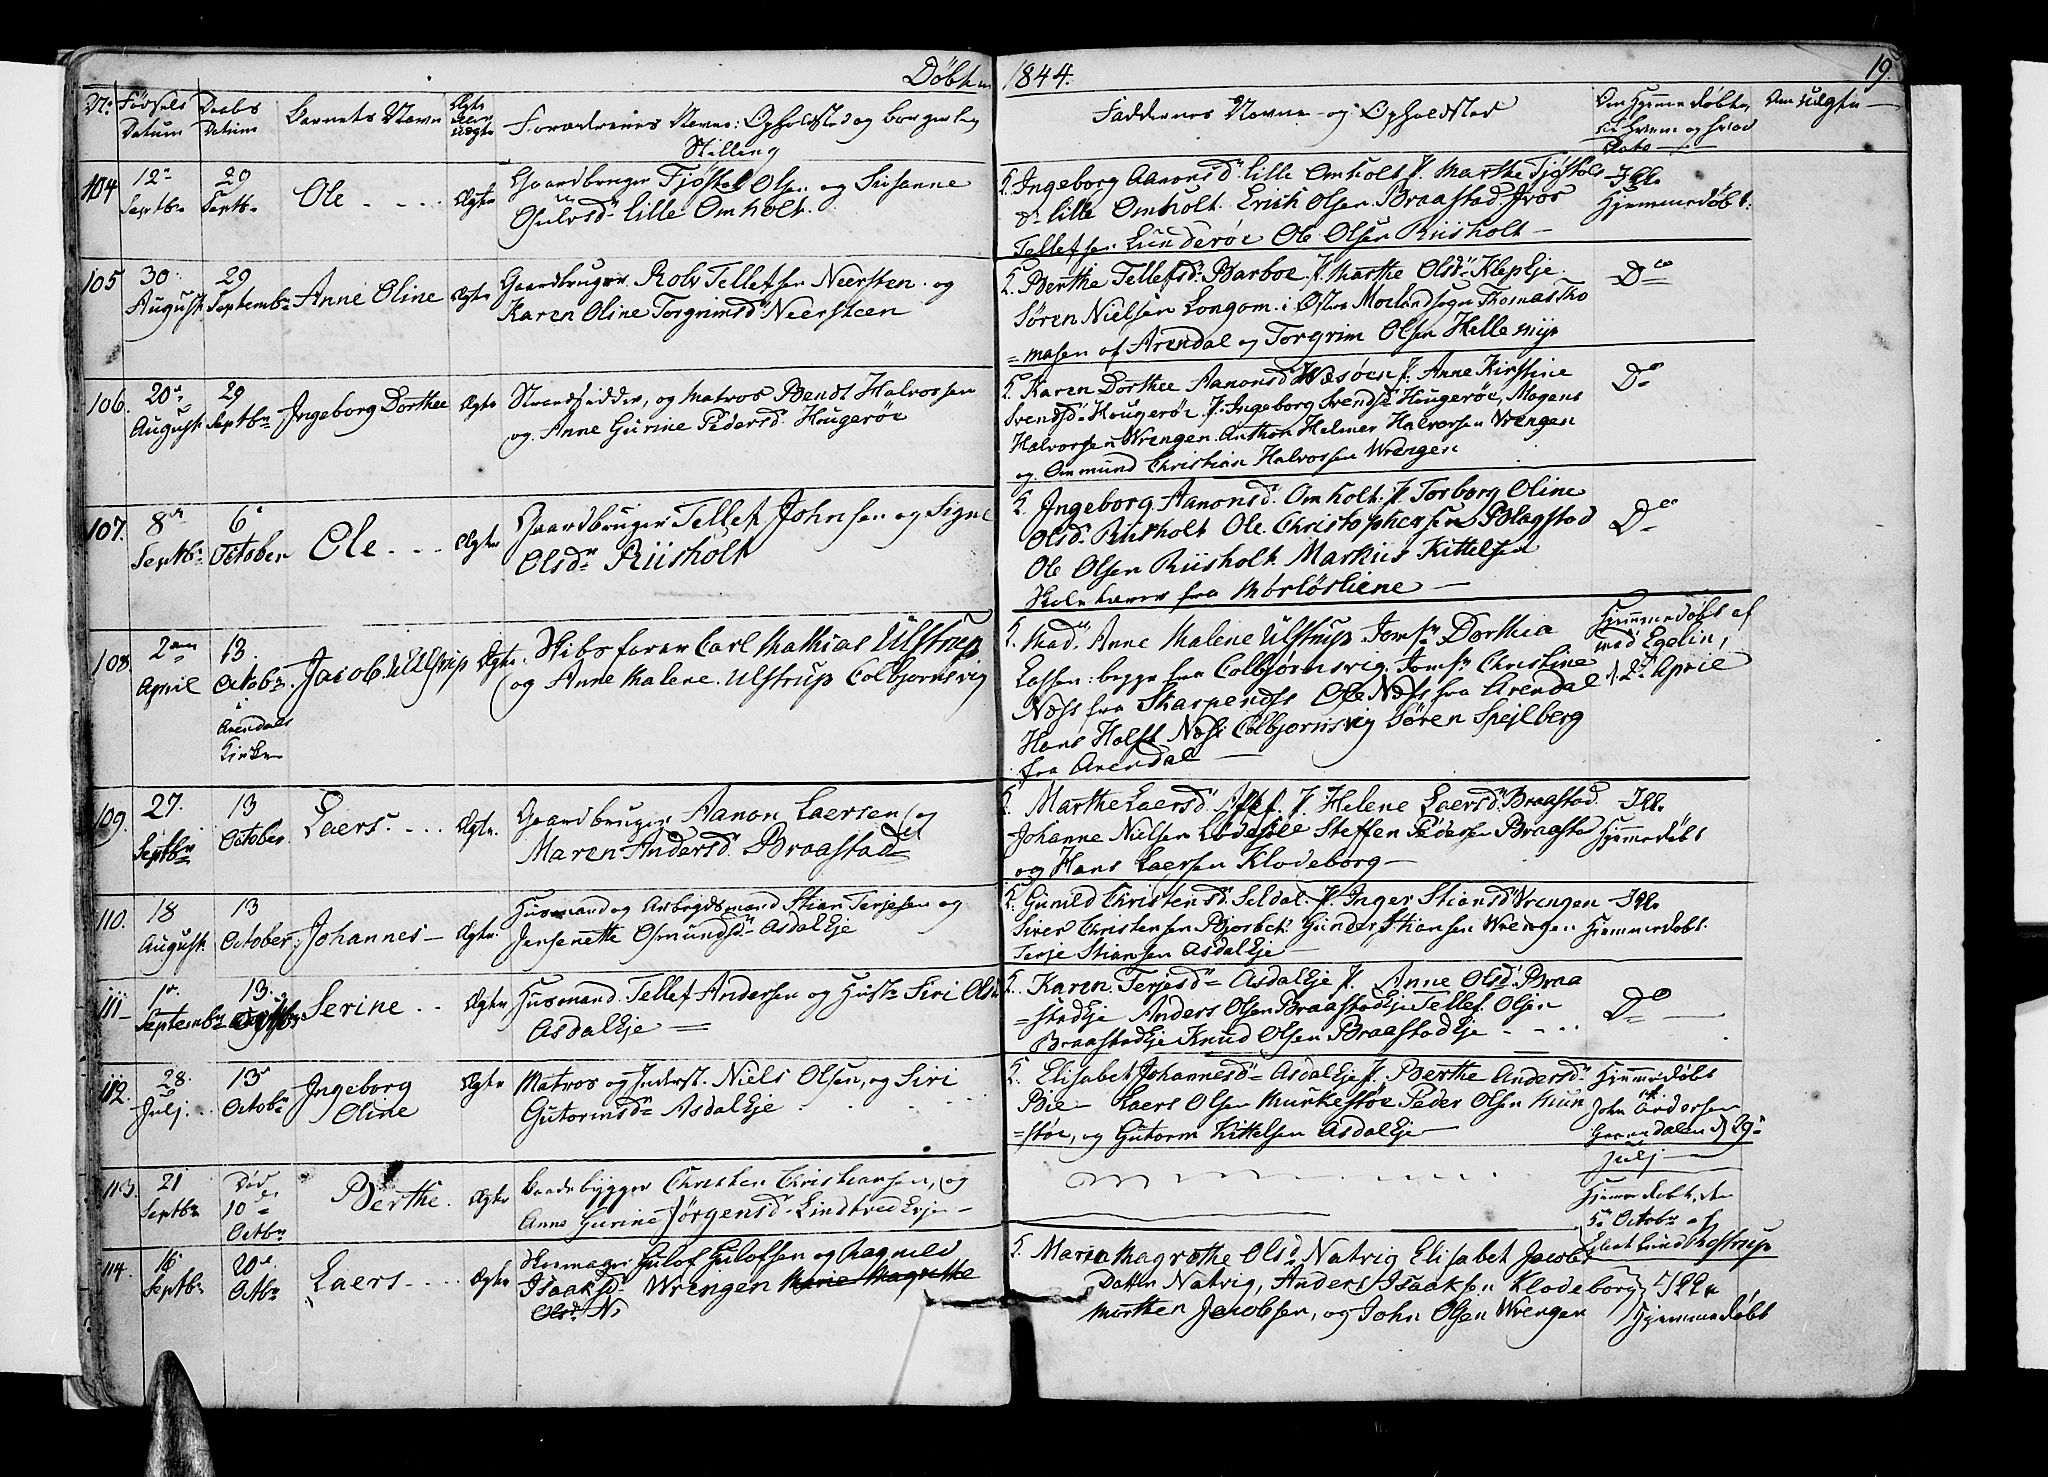 Døbte 1844. 19
No Fødsels Datum Daabs Datum Barnets Navn Ægte eller uægte Forældrenes Navne: Opholdsted og borgerlig Stilling
Faddernes Navne og Opholdsted Om Hjemmedøbte,
104 12te Septbr 29 Septbr Ole Ægte Gaardbruger Tjøstel Olsen og Susanne
Osulvsd. Lille Omholt.
Ingeborg Aanonsd. Lille Omholt P. Marthe Tjøstels
d. Lille Omholt. Erich Olsen Braastad
Tellefsen Lunderøe Ole Olsen Riisholt
Ikke
Hjemmedøbt.
105 30 August 29 Septembr Anne Oline Ægte Gaardbruger Rolv Tellefsen Neersteen og
Karen Oline Torgrimsd. Neersteen
Berthe Tellefsd. Barboe P. Marthe Olsd. KlepEje
Søren Nielsen Longom i Østre Molandsogn Thomas Tho
=masen af Arendal og Torgrim Olsen Hellemyr
Do
106. 20de August 29 Septbr Ingeborg Dorthee Ægte Strandsidder, og Matros Bendt Halvorsen
og Anne Gurine Pedersd. Hougerøe
Karen Dorthee Aanonsd. P. Anne Kirstine
Svendsd. Hougerøe P. Ingeborg Svendsd Hougerøe, Mogens
Halvorsen Wrengen. Anthon Helmer Halvorsen Wrengen
og Ommund Christian Halvorsen Wrengen
Do
107. 8de Septbr 6te October Ole Ægte Gaardbruger Tellef Johnsen og Signe
Olsd. Riisholt
Ingeborg Aanonsd. Omholt. P. Torborg Oline
Olsd. Riisholt Ole Christophersen Blagstad
Ole Olsen Riisholt Markus Kittelsen
Skolelærer fra Mørløsliene
Do
108 2den April 13 Octobr i Arendals Kirke Jacob Ulstrup Ægte Skibsfører Carl Mathias Ulstrup
og Anne Malene Ulstrup Colbjørnsvig
Mad. Anne Malene Ulstrup Jomfr Dorthea
Lassen begge fra Colbjørnsvig, Jomfr Christine
Næss fra Skarpenæss Ole Næss fra Arendal
Hans Holst Næss Colbjørnsvig Søren Spejlberg
fra Arendal
Hjemmedøbt af
Mad Egelin,
d. 2den April
109. 27. Septbr 13 October Laers. Ægte Gaardbruger Aanon Laersen og
Maren Andersd. Braastad
Marthe Laersd. P. Helene Laersd. Braastad.
Johanne Nielsen Løddesøl Steffen Pedersen Braastad
og Hans Laersen Klodeborg
Ikke
Hjemmedøbt
110. 18 August 13 October Johannes Ægte Husmand og Arbejdsmand Stian Terjesen og
Jensenette Osmundsd. AsdalEje
Gunild Christensd. Seldal. P. Inger Stiansd Wrengen
Siver Christensen Bjorbek Gunder Stiansen Wrengen
Terje Stiansen AsdalEje
Ikke
Hjemmedøbt.
111 1ste Septembr 13. Octobr Serine Ægte Husmand. Tellef Andersen og Hustr Siri Olsd
AsdalEje
Karen Terjesd. AsdalEje P. Anne Olsd. Braa
=stadEje Anders Olsen BraastadEje Tellef Olsen
BraastadEje Knud Olsen BraastadEje
Do
112. 28. Julj 13 Octobr Ingeborg Oline Ægte Matros og Inderst. Niels Olsen, og Siri
Gutormsd. AsdalEje
Elisabet Johannesd. AsdalEje P. Berthe Andersd.
Bie Laers Olsen Murkestøe Peder Olsen Mun
=støe, og Gutorm Kittelsen AsdalEje
Hjemmedøbt
John Andersen
d 29
Julj
113. 21 Septbr Død 10de Octbr Berthe. Ægte Baadebygger Christen Christiansen, og
Anne Gurine Jørgensd. Lindtved Eje
Hjemmedøbt, den
5te Octobr af
114. 16 Septbr 20de Octbr Laers Ægte Skomager Gulof Gulofsen og Magnild
Isaaksd. Wrengen Marie Magrethe
Olsd. N
Maren Magrethe Olsd. Natvig Elisabet Jacobs
Datter Natvig, Anders Isaaksen Klodeborg
Morthen Jacobsen, og John Olsen Wrengen
Hjemmedøbt